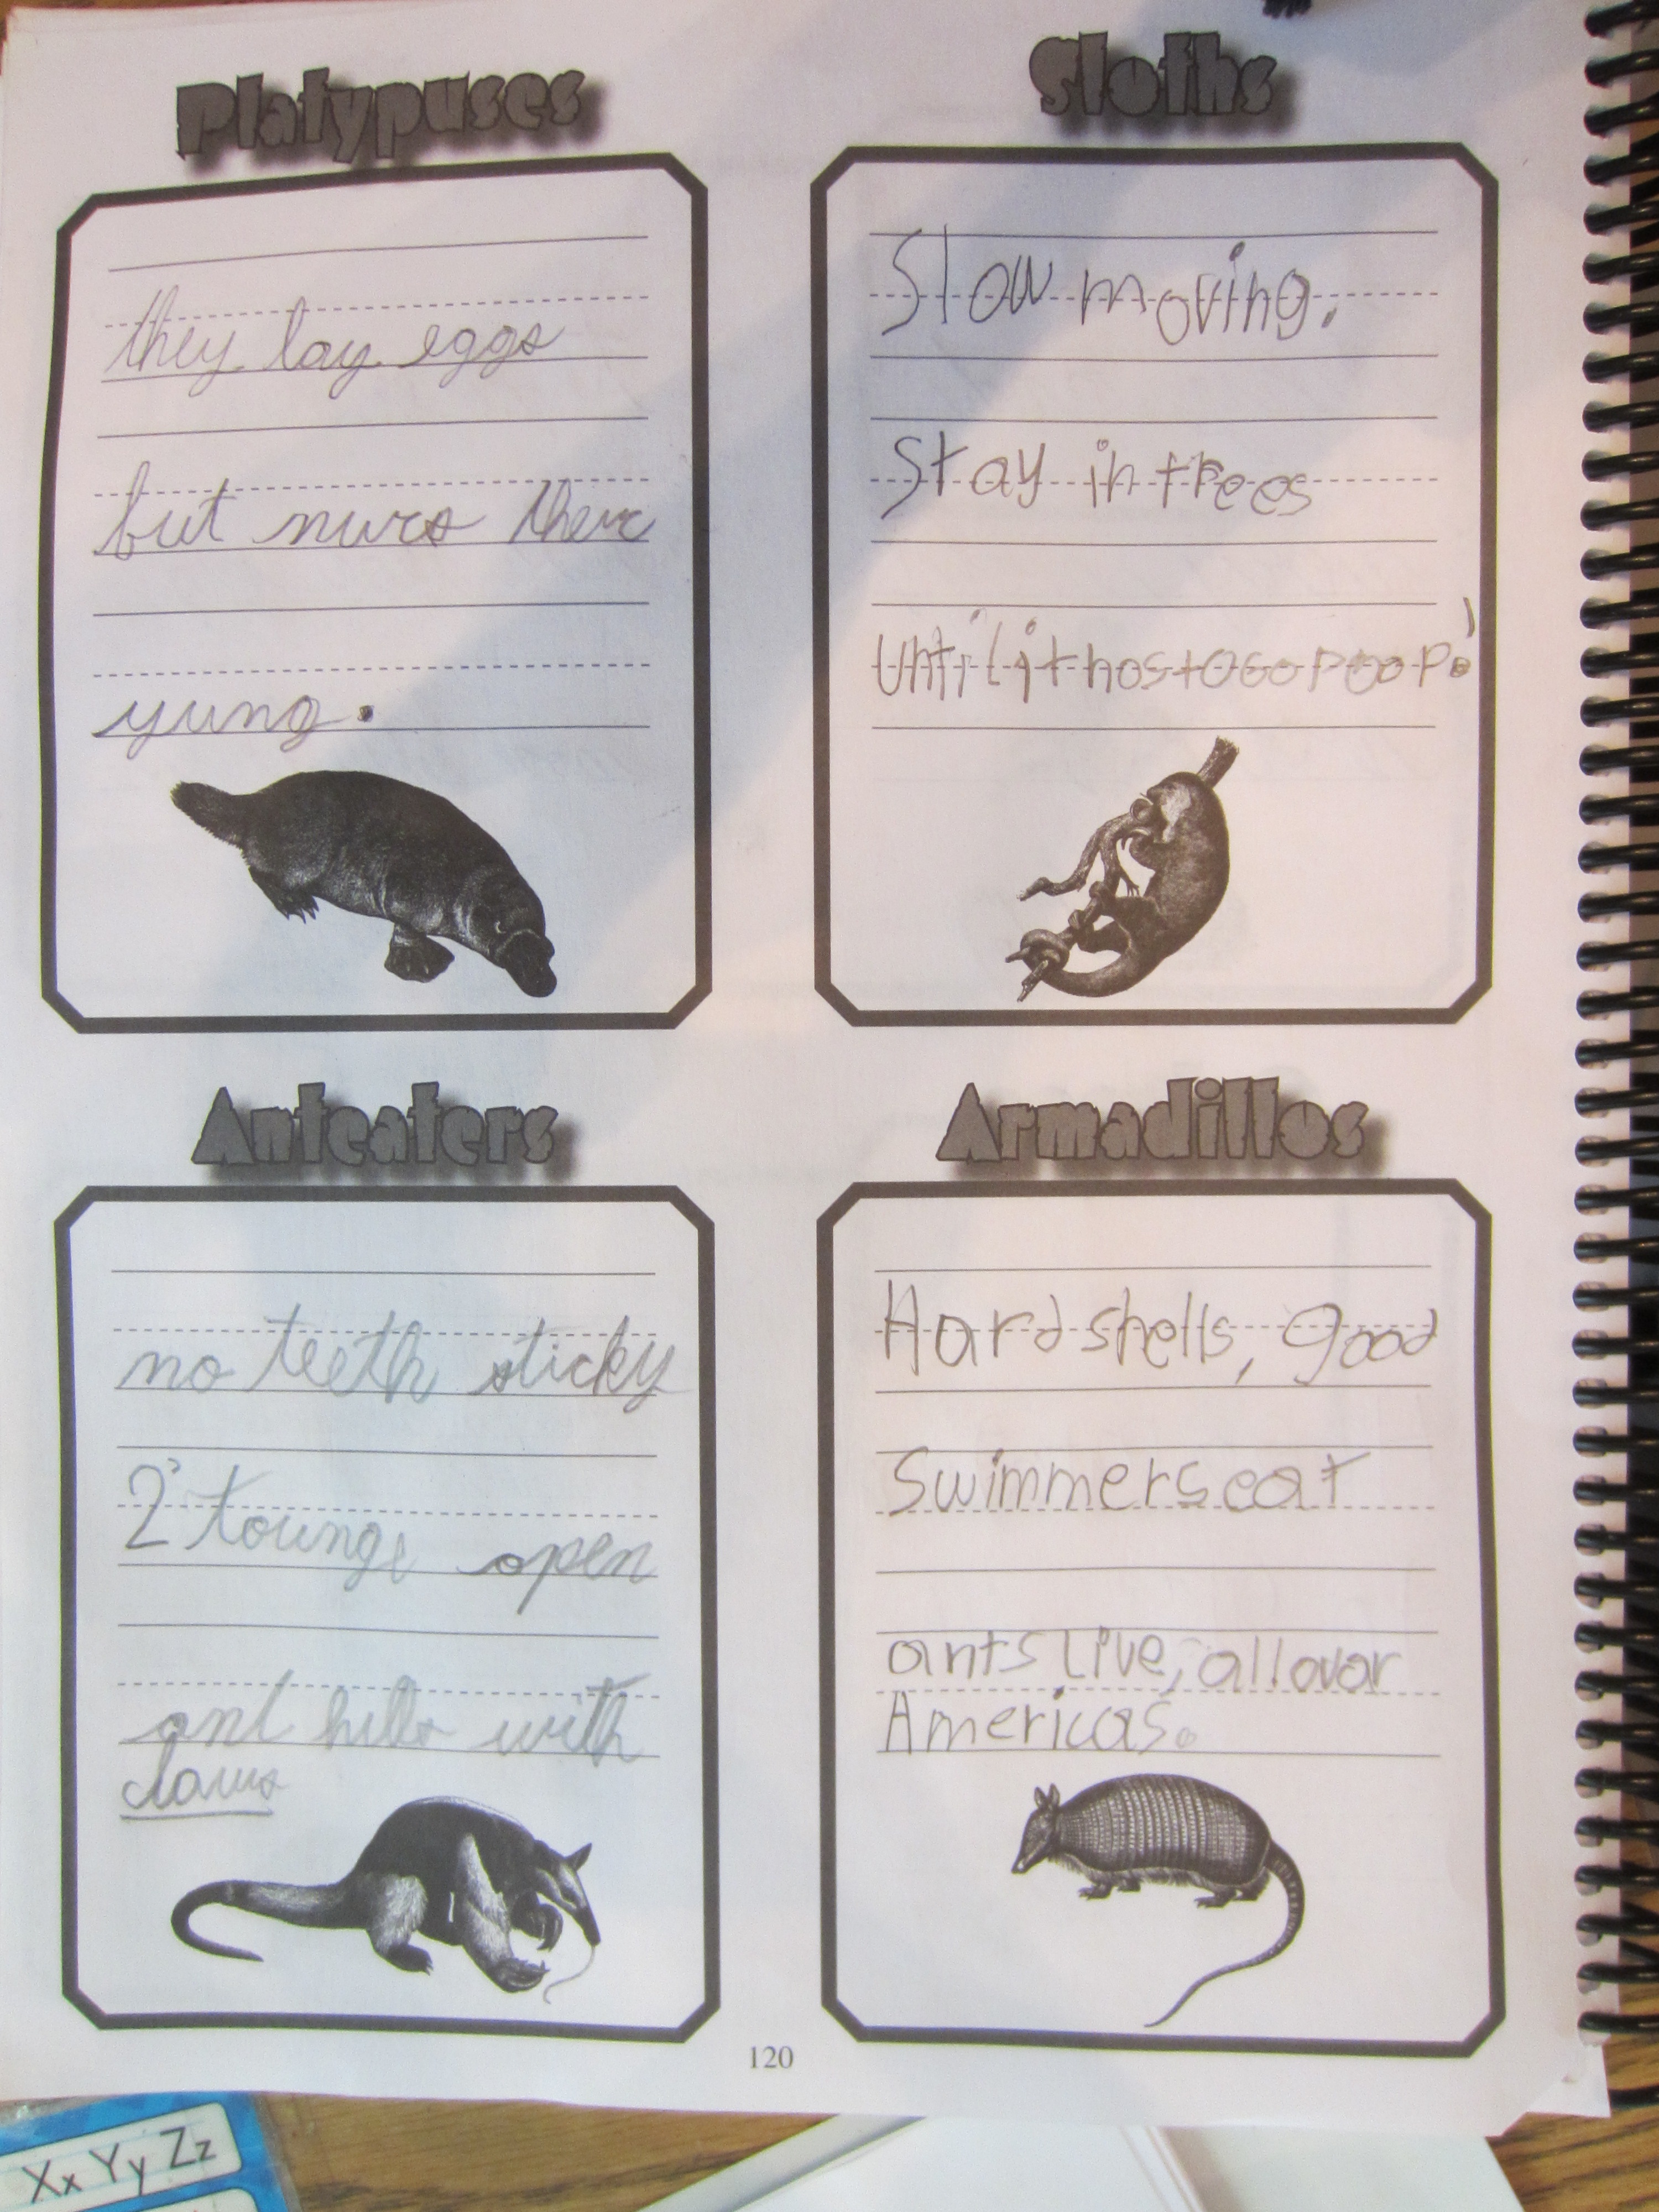 Platypuses
they lay eggs
but nurs their
yung.
Sloths
Slow moving.
Stay in trees
until it has to go poop!
Anteaters
no teeth sticky
2' tounge open
ant hills with
claws
Armadillos
Hard shells, good
Swimmers eat
ants live, all ovar
Americas.
120
Xx Yy Zz